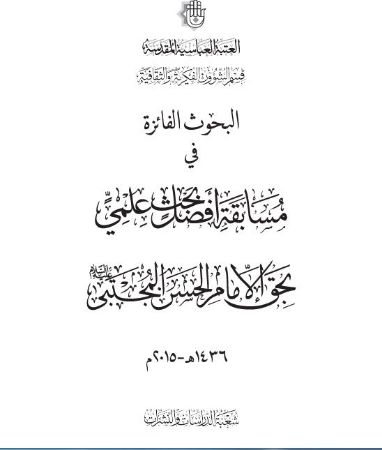 العتبة العباسية المقدسة
قسم الشؤون الفكرية والثقافية
البحوث الفائزة
في
مسابقة أفضل بحث علمي
بحق الإمام الحسن المجتبى عليه السلام
١٤٣٦هـ-٢٠١٥م
شعبة الدراسات والنشرات